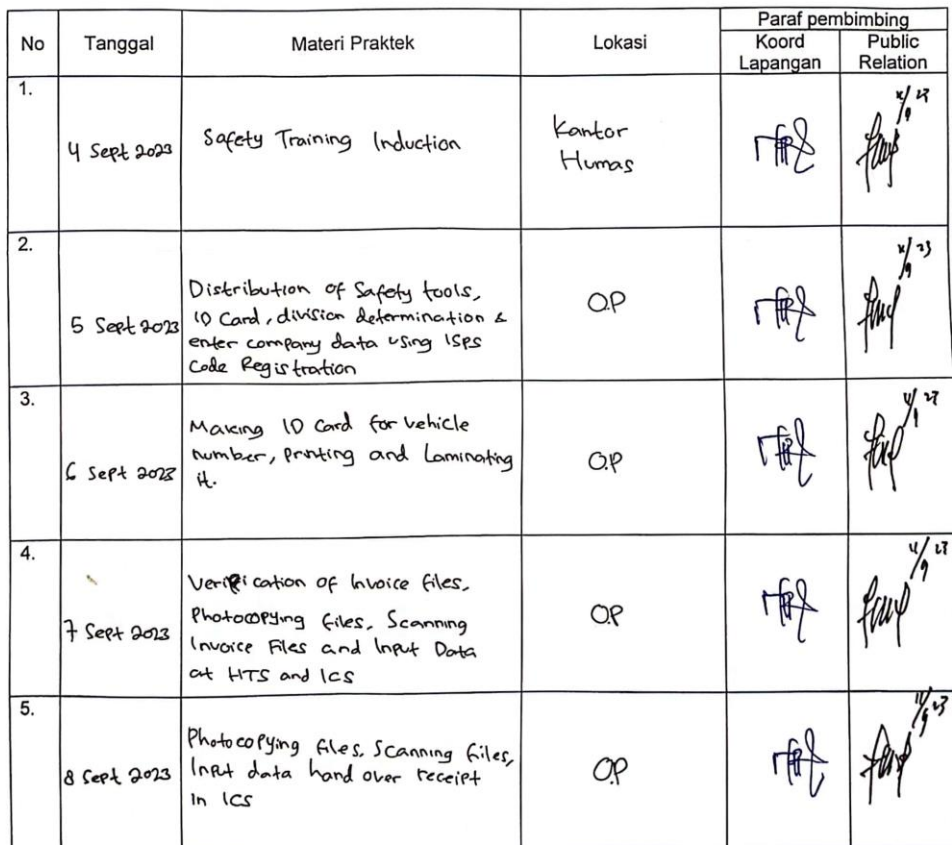 No
Tanggal
Materi Praktek
Lokasi
Paraf pembimbing
Koord
Lapangan
Public
Relation
1.
4 Sept 2023
Safety Training Induction
Kantor
Humas
2.
5 Sept 2023
Distribution of Safety tools,
ID Card, division determination &
enter company data using ISPS
Code Registration
O.P
3.
6 Sept 2023
Making ID Card for vehicle
number, printing and Laminating
it.
O.P
4.
7 Sept 2023
Verification of Invoice files,
Photocopying files, Scanning
Invoice Files and Input Data
at HTS and ICS
O.P
5.
8 Sept 2023
Photocopying files, Scanning files,
Input data hand over receipt
in ICS
O.P